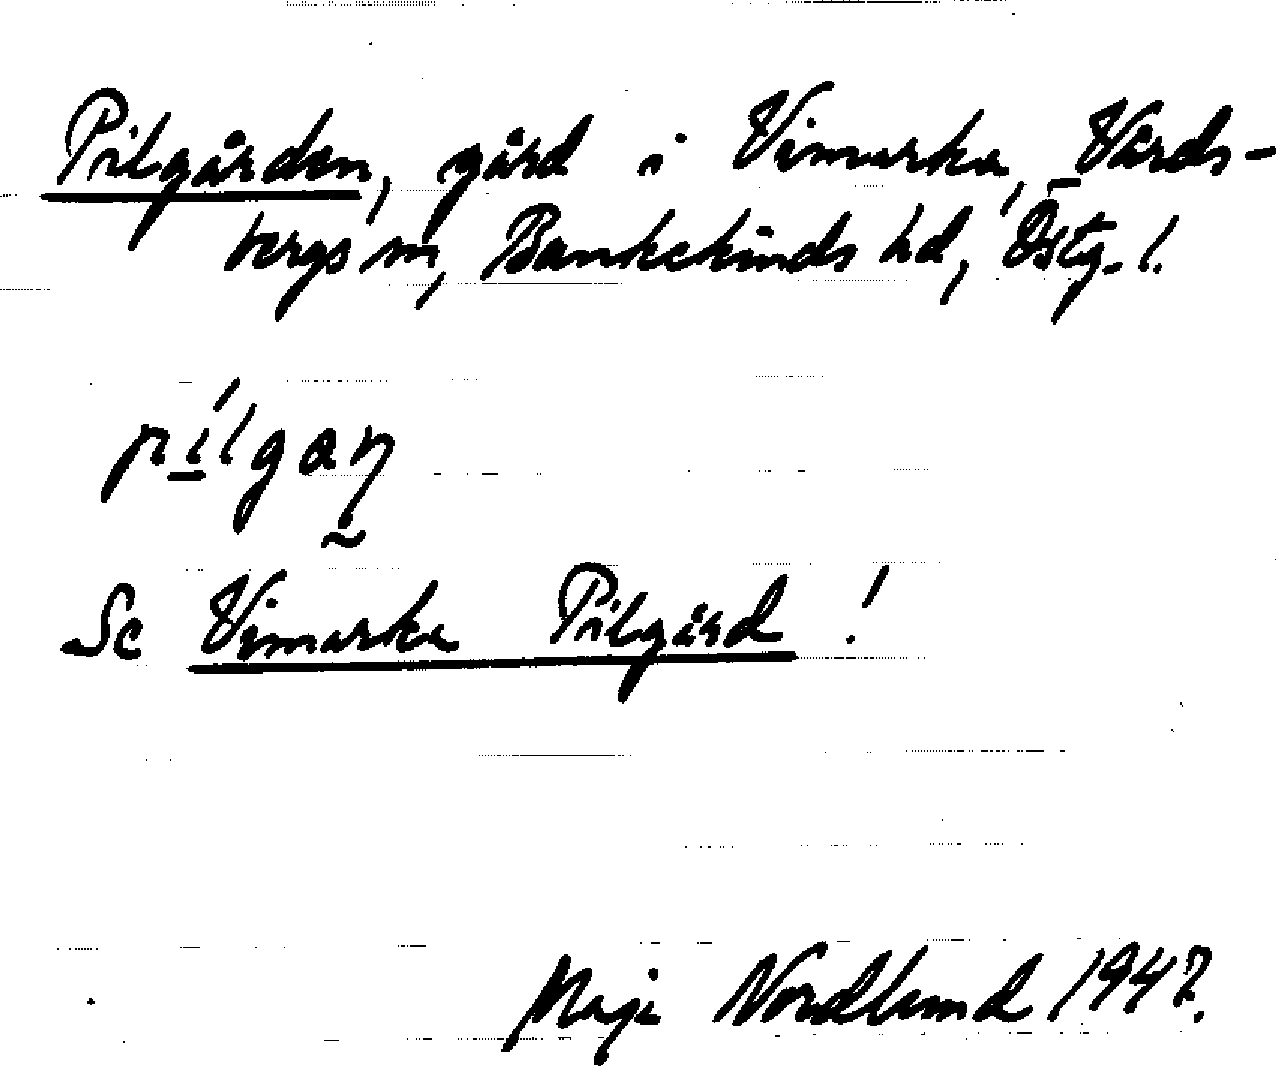 Pilgården, gård i Vimarka, Vårds-
bergs sn, Bankekinds hd, Östg. l.
pílgaɳ
Se Vimarka Pilgård !
Maja Nordlund 1947.